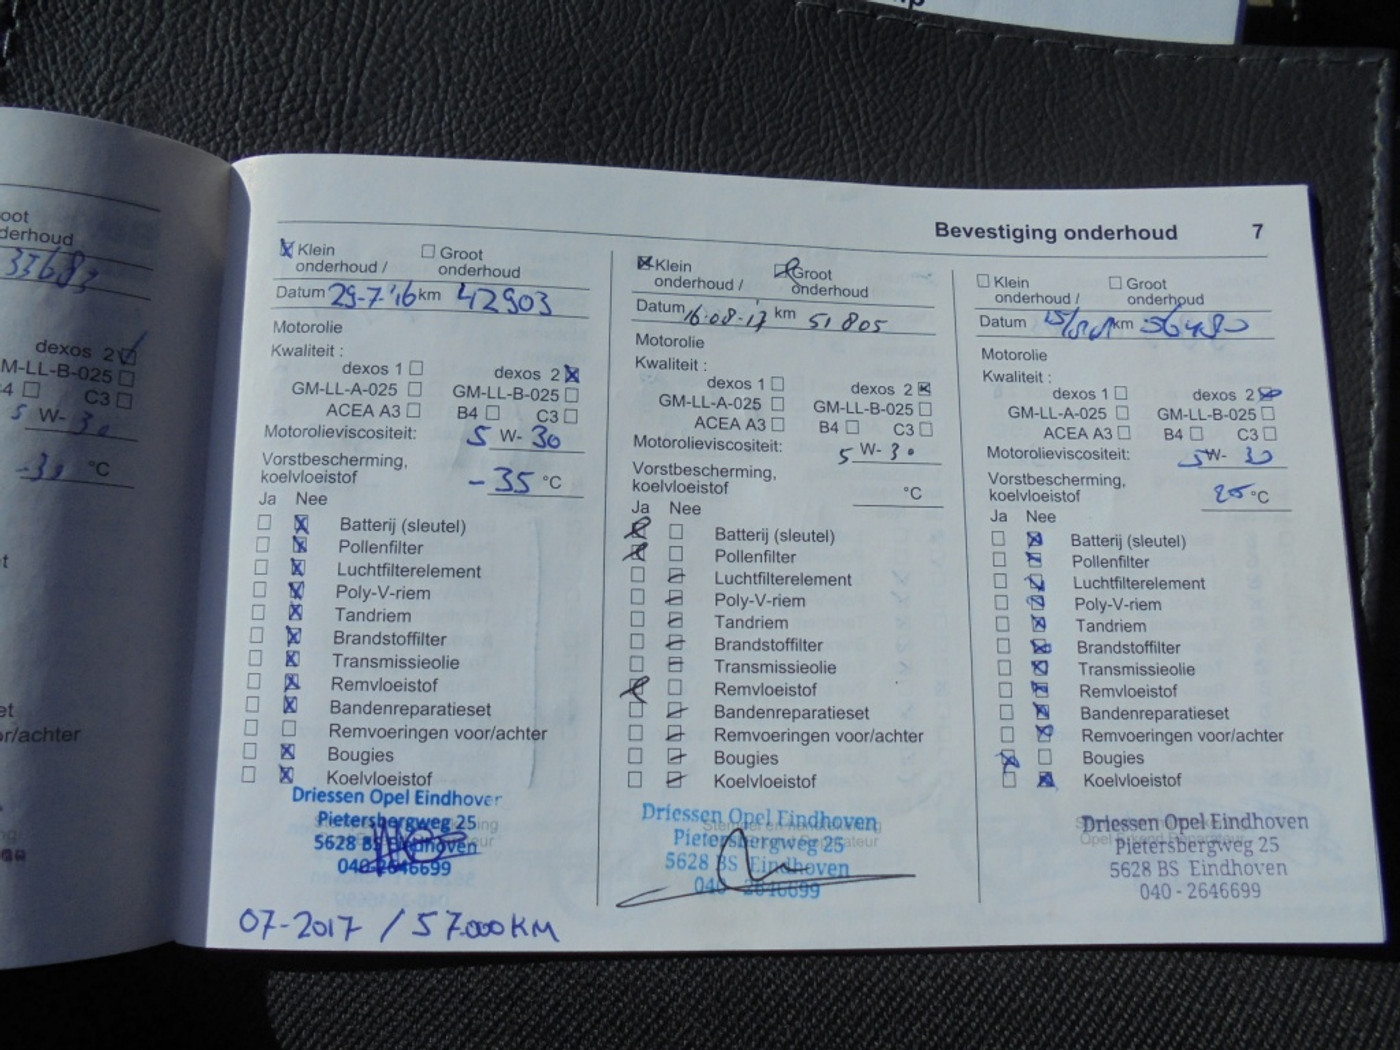 oot
derhoud
33683
dexos 2
M-LL-B-025
4 C3
5 W- 30
-30 °C
t
et
or/achter
Bevestiging onderhoud 7
Klein Groot
onderhoud / onderhoud
Datum 29-7-'16 km 42903
Motorolie
Kwaliteit :
dexos 1 dexos 2
GM-LL-A-025 GM-LL-B-025
ACEA A3 B4 C3
Motorolieviscositeit: 5 W- 30
Vorstbescherming,
koelvloeistof -35 °C
Ja Nee
Batterij (sleutel)
Pollenfilter
Luchtfilterelement
Poly-V-riem
Tandriem
Brandstoffilter
Transmissieolie
Remvloeistof
Bandenreparatieset
Remvoeringen voor/achter
Bougies
Koelvloeistof
Driessen Opel Eindhoven
Pietersbergweg 25
5628 BS Eindhoven
040-2646699
07-2017 / 57.000KM
Klein Groot
onderhoud / onderhoud
Datum 16-08-17 km 51805
Motorolie
Kwaliteit :
dexos 1 dexos 2
GM-LL-A-025 GM-LL-B-025
ACEA A3 B4 C3
Motorolieviscositeit: 5 W- 30
Vorstbescherming,
koelvloeistof °C
Ja Nee
Batterij (sleutel)
Pollenfilter
Luchtfilterelement
Poly-V-riem
Tandriem
Brandstoffilter
Transmissieolie
Remvloeistof
Bandenreparatieset
Remvoeringen voor/achter
Bougies
Koelvloeistof
Driessen Opel Eindhoven
Pietersbergweg 25
5628 BS Eindhoven
040 - 2646699
Klein Groot
onderhoud / onderhoud
Datum km 56480
Motorolie
Kwaliteit :
dexos 1 dexos 2
GM-LL-A-025 GM-LL-B-025
ACEA A3 B4 C3
Motorolieviscositeit: 5W- 30
Vorstbescherming,
koelvloeistof 25 °C
Ja Nee
Batterij (sleutel)
Pollenfilter
Luchtfilterelement
Poly-V-riem
Tandriem
Brandstoffilter
Transmissieolie
Remvloeistof
Bandenreparatieset
Remvoeringen voor/achter
Bougies
Koelvloeistof
Driessen Opel Eindhoven
Pietersbergweg 25
5628 BS Eindhoven
040 - 2646699